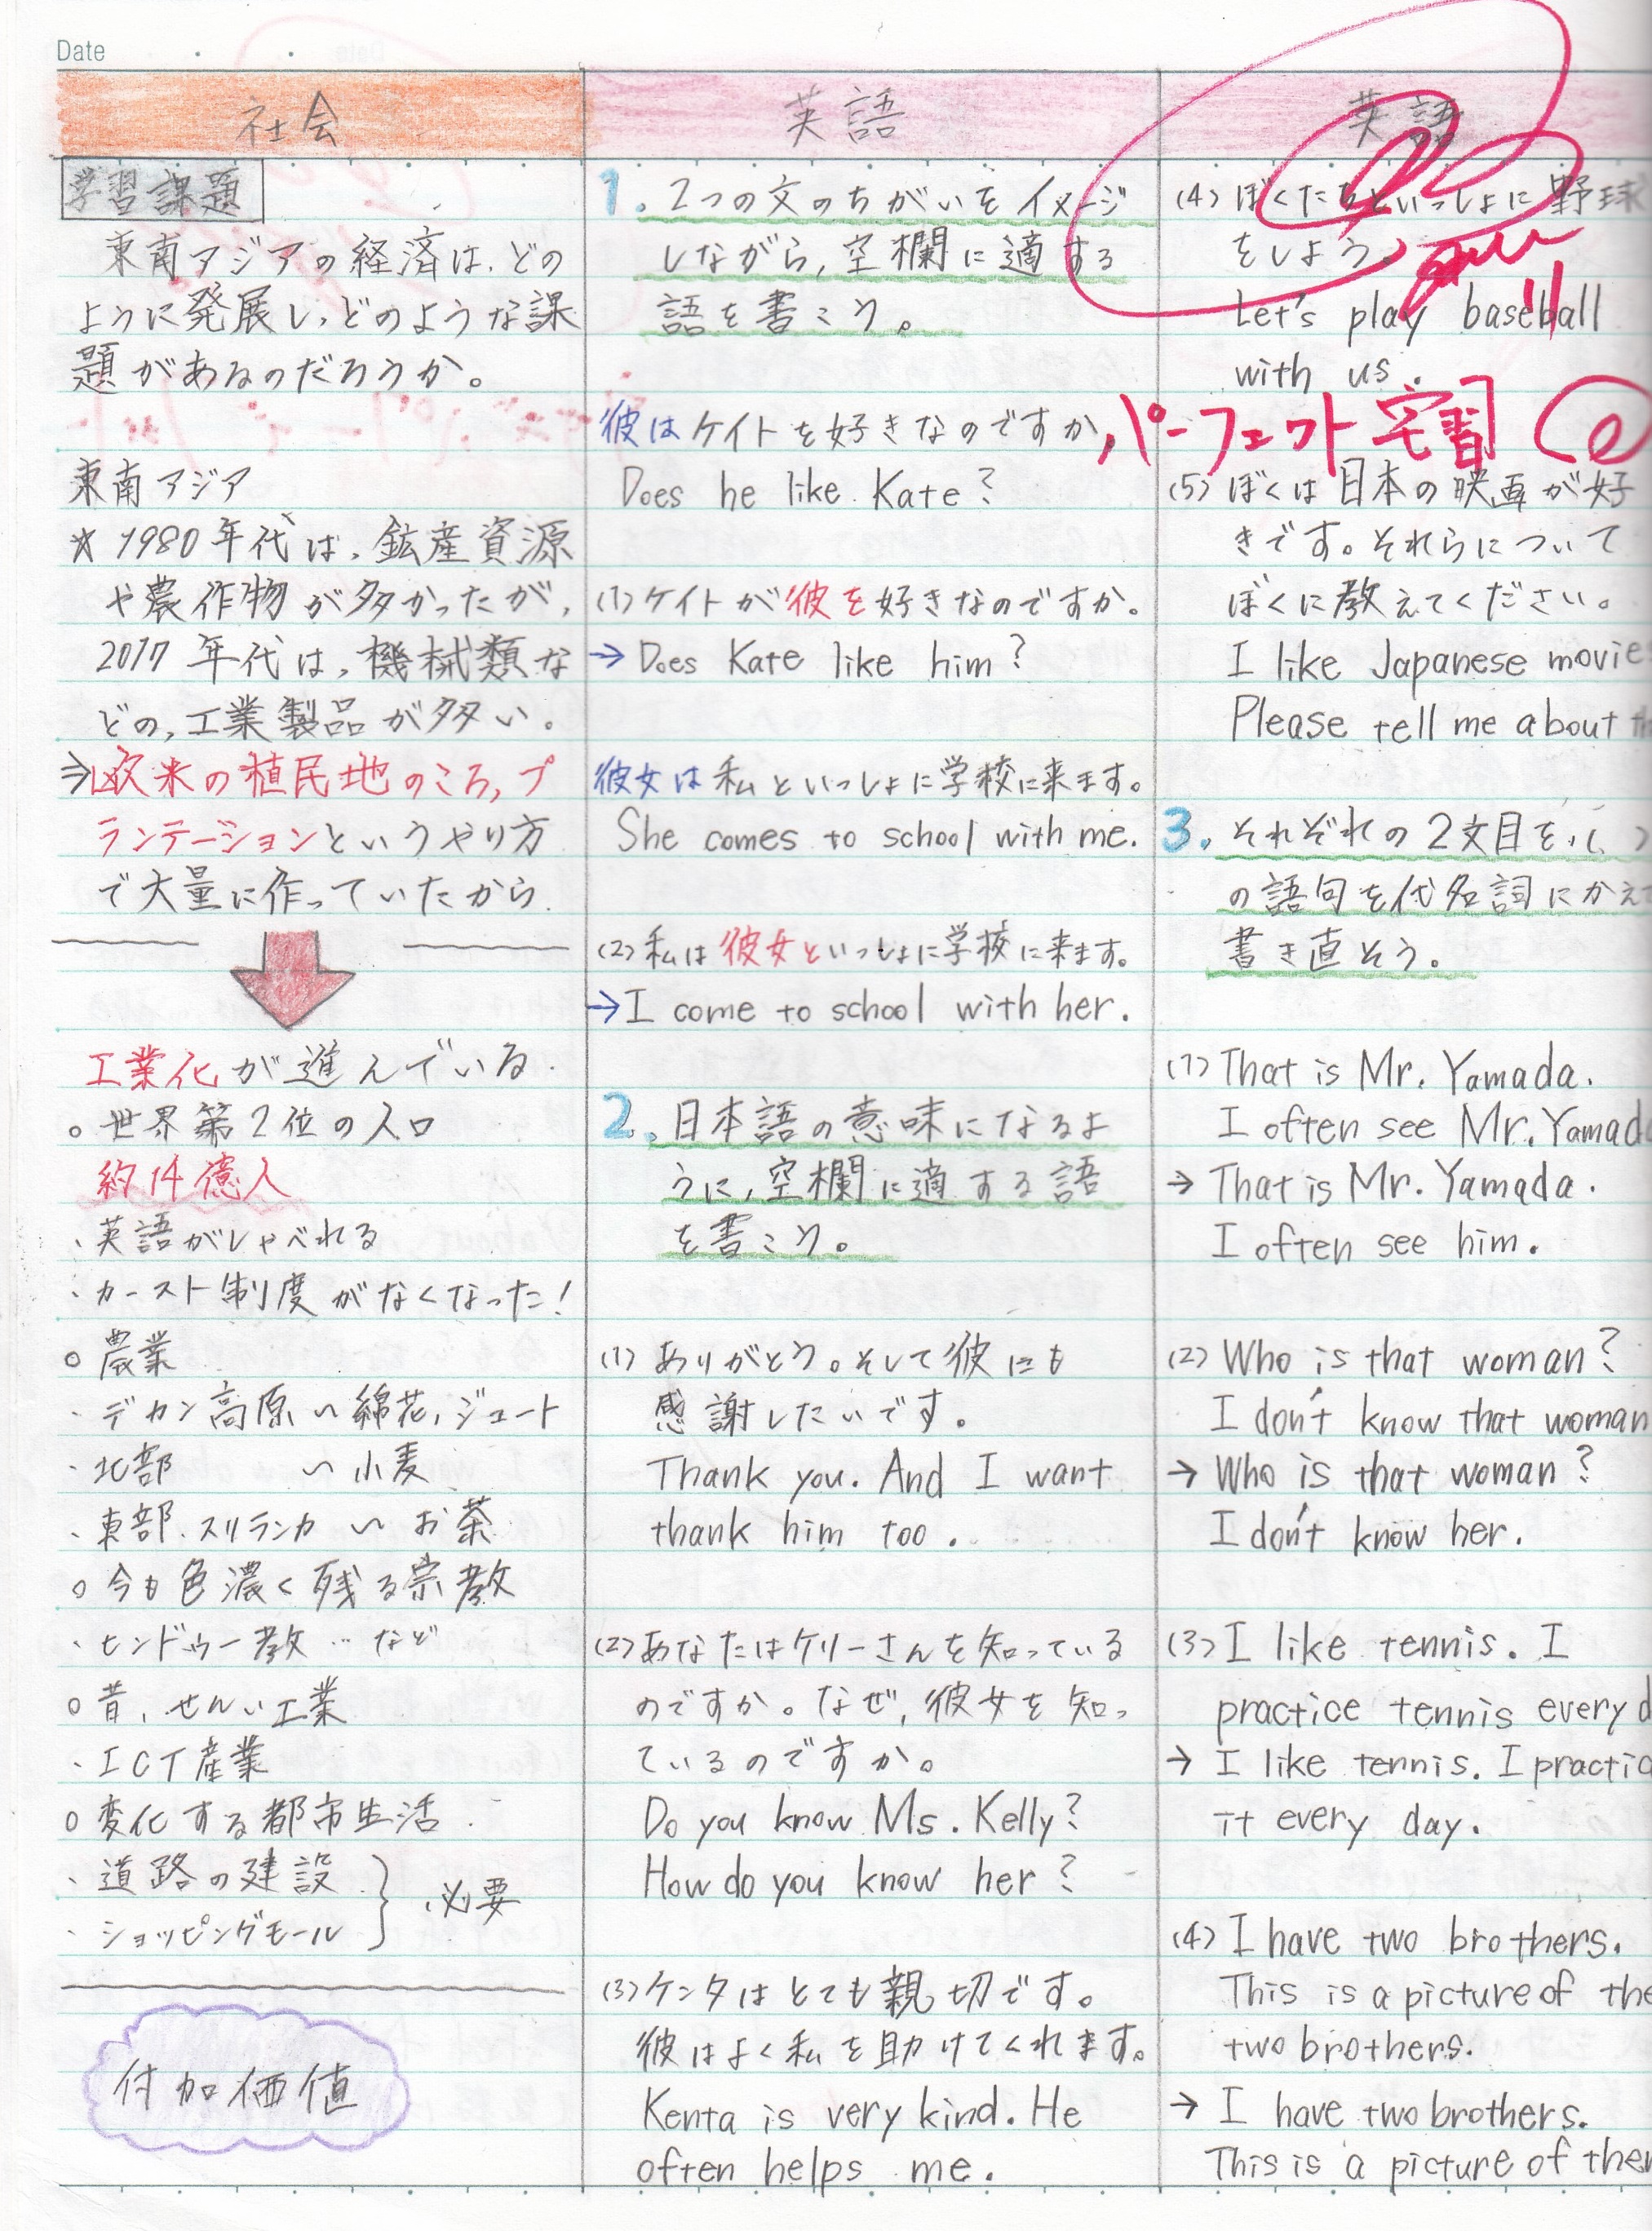 Date
社会
学習課題
東南アジアの経済は、どの
ように発展し、どのような課
題があるのだろうか。
東南アジア
☆1980年代は、鉱産資源
や農作物が多かったが、
2017年代は、機械類な
どの、工業製品が多い。
⇒欧米の植民地のころ、プ
ランテーションというやり方
で大量に作っていたから
工業化が進んでいる.
○世界第2位の人口
約14億人
・英語がしゃべれる
・カースト制度がなくなった!
○農業
・デカン高原〜綿花,ジュート
・北部 〜小麦
・東部、スリランカ〜お茶
○今も色濃く残る宗教
・ヒンドゥー教…など
○昔、せんい工業
・ICT産業
○変化する都市生活.
・道路の建設
・ショッピングモール } 必要
付加価値
英語
1. 2つの文のちがいをイメージ
しながら,空欄に適する
語を書こう。
彼はケイトを好きなのですか,
Does he like Kate?
(1)ケイトが彼を好きなのですか。
→Does Kate like him?
彼女は私といっしょに学校に来ます。
She comes to school with me.
(2)私は彼女といっしょに学校に来ます。
→I come to school with her.
2. 日本語の意味になるよ
うに,空欄に適する語
を書こう。
(1)ありがとう。そして彼にも
感謝したいです。
Thank you. And I want
thank him too.
(2)あなたはケリーさんを知っている
のですか。なぜ,彼女を知っ
ているのですか。
Do you know Ms. Kelly?
How do you know her?
(3)ケンタはとても親切です。
彼はよく私を助けてくれます。
Kenta is very kind. He
often helps me.
英語
(4)ぼくたちといっしょに野球
をしよう。
Let's play baseball
with us.
パーフェクト宅習
(5)ぼくは日本の映画が好
きです。それらについて
ぼくに教えてください。
I like Japanese movie
Please tell me about
3. それぞれの2文目を,( )
の語句を代名詞にかえて
書き直そう。
(1) That is Mr. Yamada.
I often see Mr. Yamad
→ That is Mr. Yamada.
I often see him.
(2) Who is that woman?
I don't know that woman
→ Who is that woman?
I don't know her.
(3) I like tennis. I
practice tennis every d
→ I like tennis. I practic
it every day.
(4) I have two brothers.
This is a picture of the
two brothers.
→ I have two brothers.
This is a picture of them